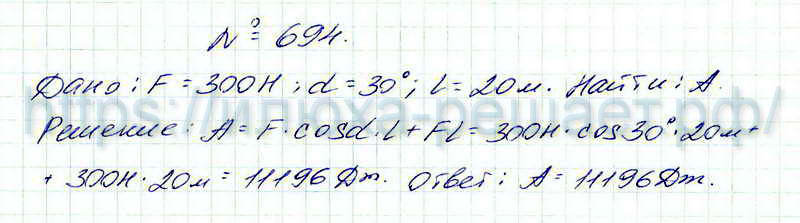 № 694.
Дано: F = 300Н; α = 30°; l = 20м. Найти: A.
https://илюха-решает.рф/
Решение: A = F·cosα·l + Fl = 300Н·cos30°·20м +
+ 300Н·20м = 11196 Дж. Ответ: A = 11196 Дж.